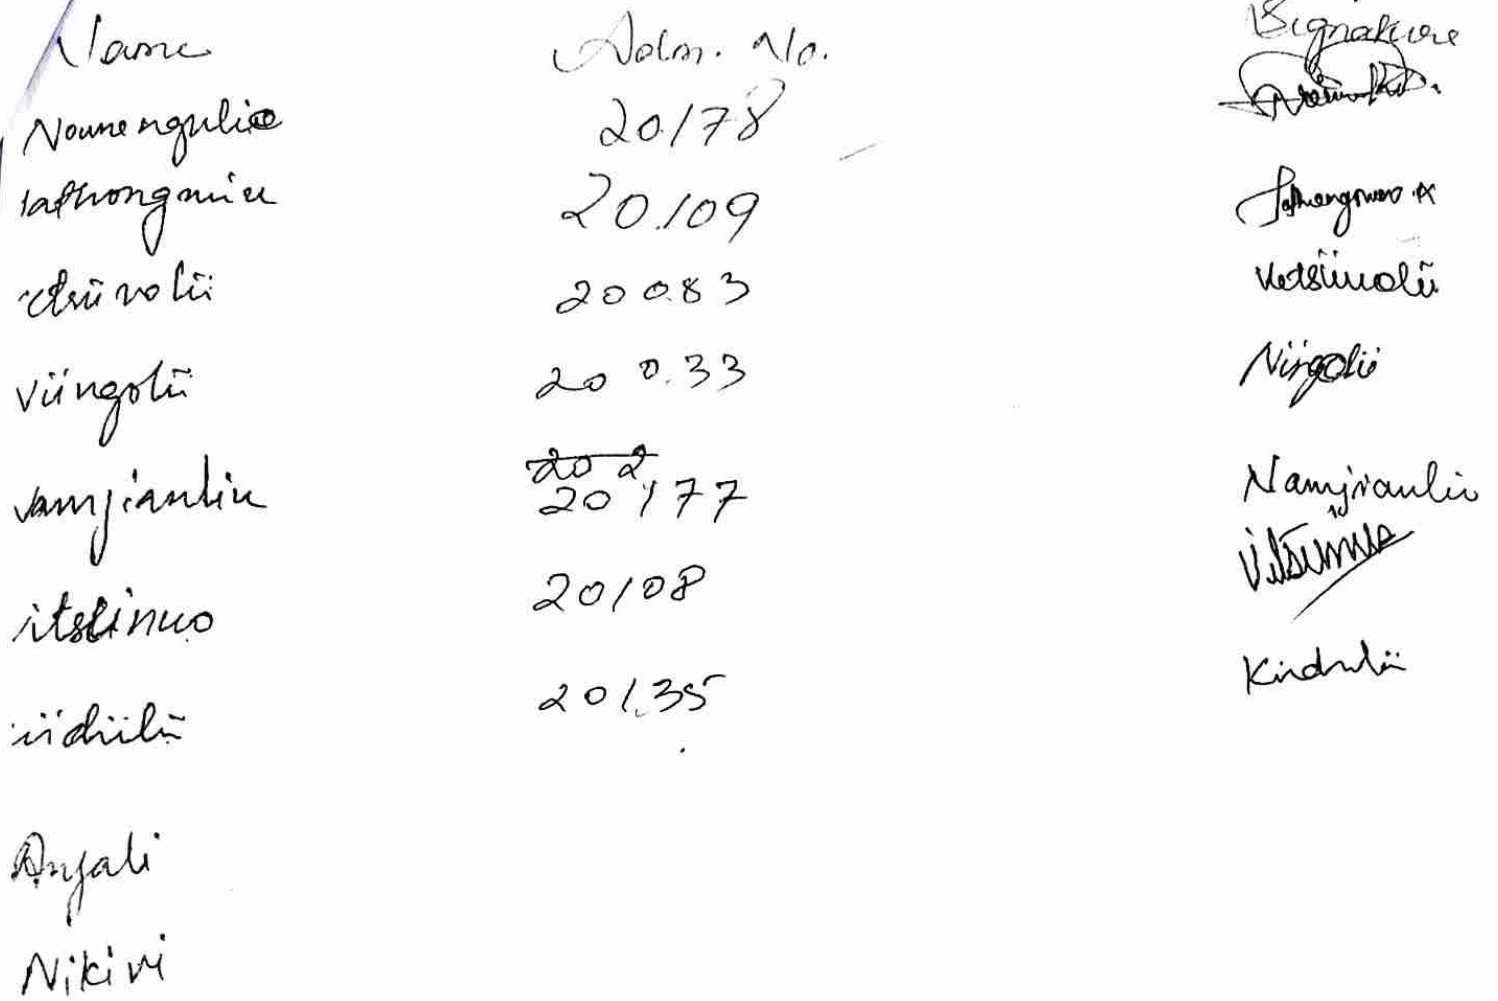 Name Adm. No. Signature
Nounenguliu 20178
Iathongmiu 20109
etsüvolü 20083 Vetsüuolü
Vüngolü 20033 Nüngolü
amjianliu 20177 Namjianliu
itsünuo 20108 Vitsünuo
üdülü 20135 Küdulü
Anjali
Nikivi